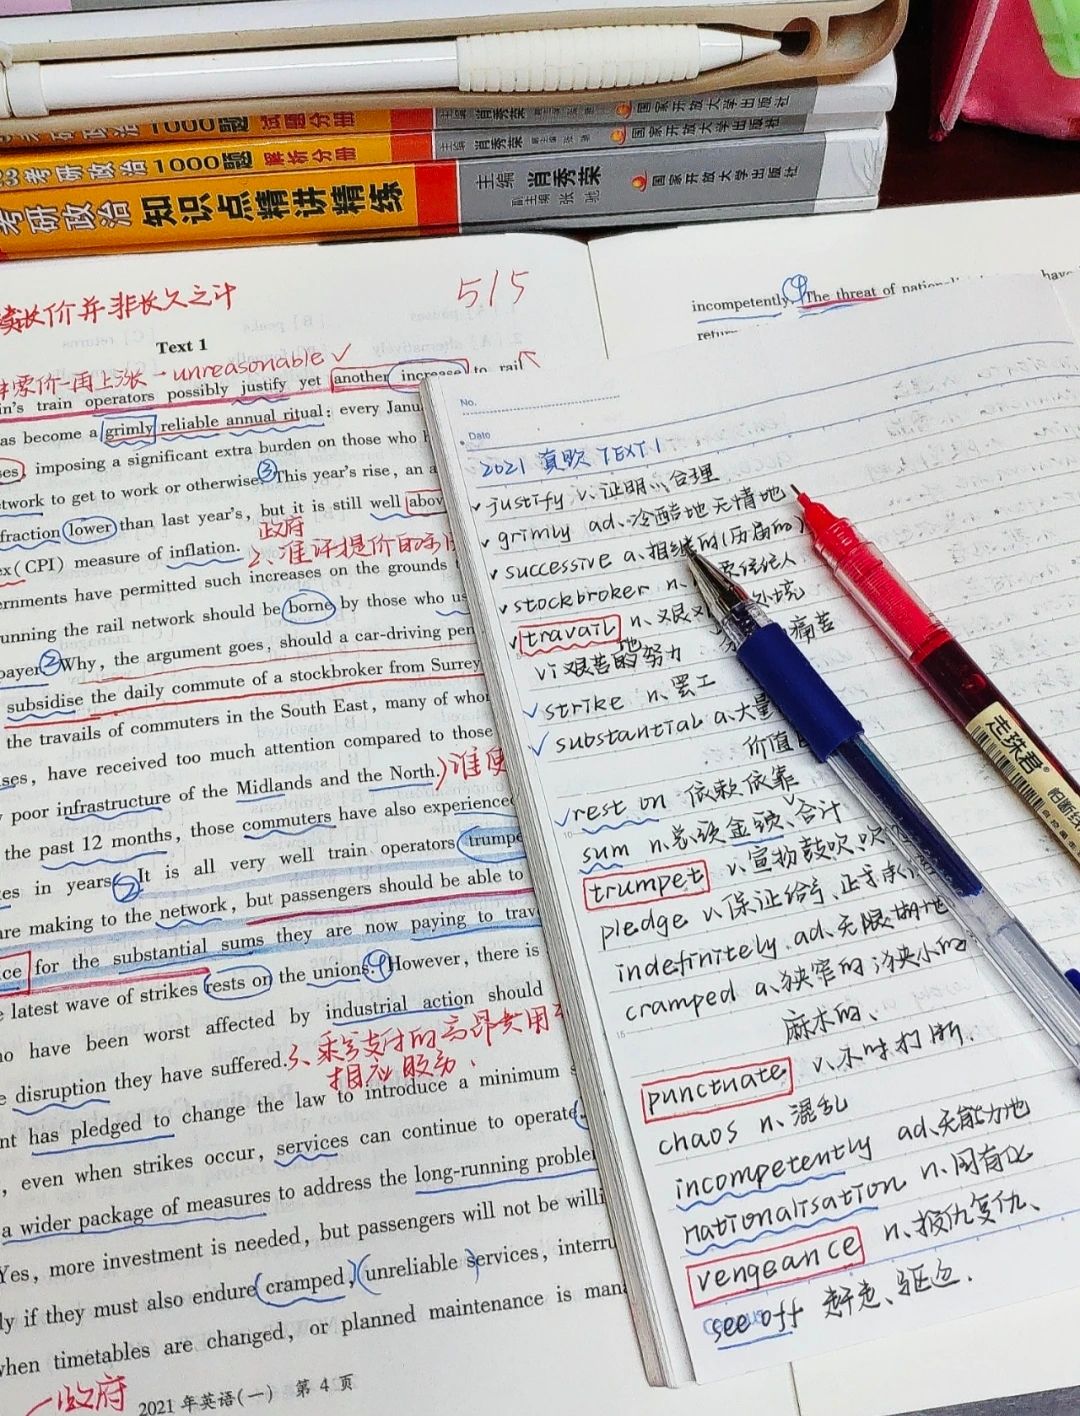 考研政治1000题 试题分册
主编 肖秀荣
国家开放大学出版社
考研政治1000题 解析分册
主编 肖秀荣
国家开放大学出版社
考研政治 知识点精讲精练
主编 肖秀荣
副主编 张驰
国家开放大学出版社
涨价并非长久之计
5/5
Text 1
再上涨-unreasonable ✓
train operators possibly justify yet another increase to rail
as become a grimly reliable annual ritual: every Janu
imposing a significant extra burden on those who
etwork to get to work or otherwise. ③This year's rise, an a
fraction lower than last year's, but it is still well abov
政府
(CPI) measure of inflation.
2、准许提价的
ernments have permitted such increases on the grounds
unning the rail network should be borne by those who us
payer ②Why, the argument goes, should a car-driving pen
subsidise the daily commute of a stockbroker from Surrey
the travails of commuters in the South East, many of who
ses, have received too much attention compared to those
poor infrastructure of the Midlands and the North.
the past 12 months, those commuters have also experienced
es in years ②It is all very well train operators trumpe
are making to the network, but passengers should be able to
ce for the substantial sums they are now paying to trav
e latest wave of strikes rests on the unions. ④However, there is
ho have been worst affected by industrial action should
e disruption they have suffered.
3、乘客支付的高昂费用
相应
nt has pledged to change the law to introduce a minimum
, even when strikes occur, services can continue to operate.
a wider package of measures to address the long-running proble
Yes, more investment is needed, but passengers will not be willi
ly if they must also endure cramped, unreliable services, interru
when timetables are changed, or planned maintenance is mana
一政府
2021年英语(一) 第 4 页
incompetently. ④The threat of nation
have
retur
No.
Date
2021 真题 TEXT 1
✓ justify v、证明…合理
✓ grimly ad、冷酷地 无情地
✓ successive a、相继的(历届的)
✓ stockbroker n、
✓ travail n、艰
痛苦
vi 艰苦地努力
✓ strike n、罢工
✓ substantial a、大量
价值
✓ rest on 依赖 依靠
sum n、总额 金额、合计
trumpet v、宣扬 鼓吹、
pledge v、保证给予、正式承
indefinitely. ad、无限期地
cramped a、狭窄的 狭小的
麻木的、
punctuate v、不时打断.
chaos n、混乱
incompetently ad、无能力地
nationalisation n、国有化
vengeance n、报仇复仇、
see off 赶走、驱逐.
走珠君